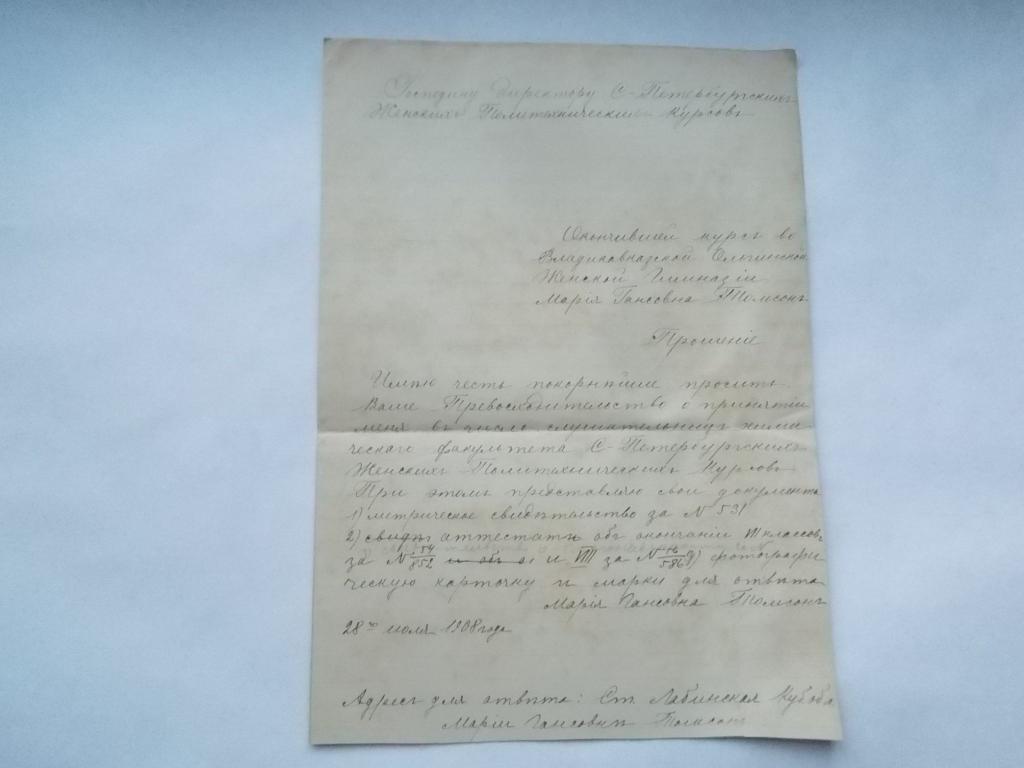 Господину Директору С-Петербургскихъ
Женскихъ Политехническихъ Курсовъ
Окончившей курсъ во
Владикавказской Ольгинской
Женской Гимназіи
Марія Гансовна Томсонъ
Прошеніе
Имѣю честь покорнѣйше просить
Ваше Превосходительство о принятіи
меня въ число слушательницъ хими-
ческаго факультета С-Петербургскихъ
Женскихъ Политехническихъ Курсовъ
При этомъ представляю свои документы
1) метрическое свидѣтельство за N 531
2) свидѣ аттестатъ объ окончаніи VII классовъ
за N 154/852 и объ о и VIII за N 16/586 фотографи
ческую карточку и марки для отвѣта
Марія Гансовна Томсонъ
28го июля 1908 года
Адресъ для отвѣта: Ст. Лабинская Куб. об.
Маріи Гансовнѣ Томсонъ